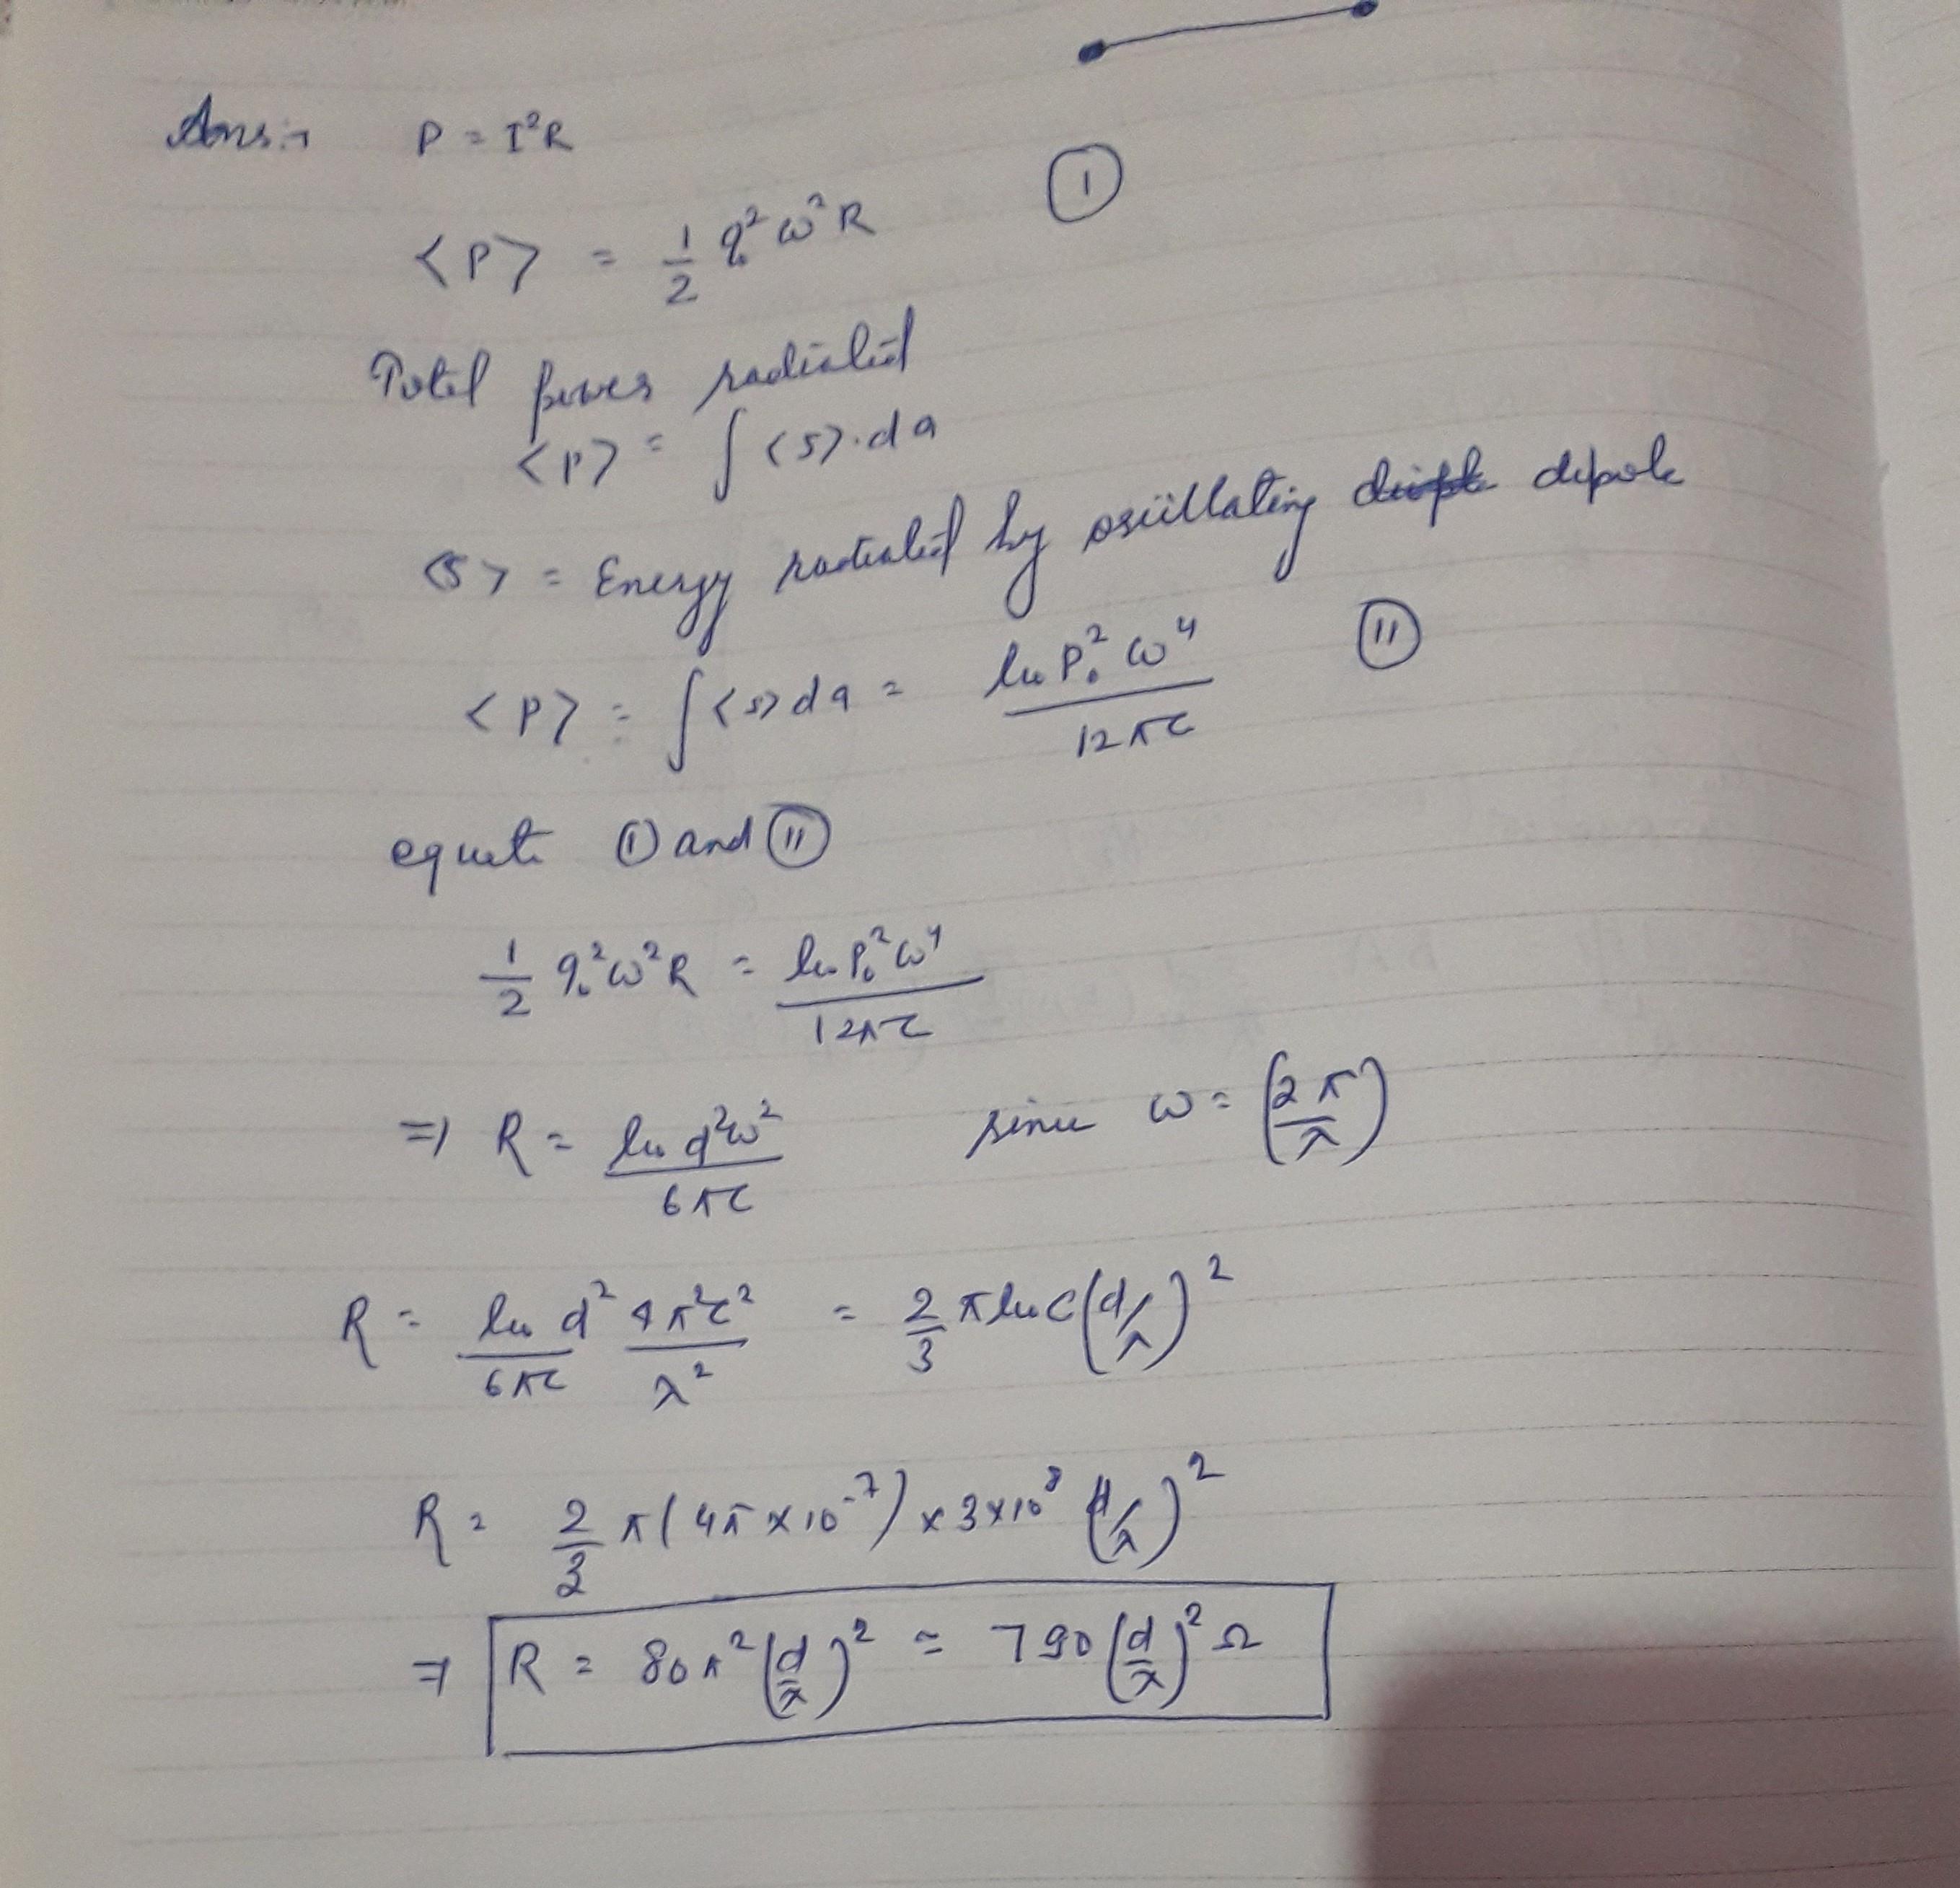 Ans:→ P = I²R
<P> = 1/2 q₀² ω² R ①
Total power radiated
<P> = ∫ <s>.da
<s> = Energy radiated by oscillating dipole
<P> = ∫ <s> da = μ₀ P₀² ω⁴ / 12πc ⑪
equate ① and ⑪
1/2 q₀² ω² R = μ₀ P₀² ω⁴ / 12πc
⇒ R = μ₀ d² ω² / 6πc since ω = (2π/λ)
R = μ₀ d² / 6πc 4π²c² / λ² = 2/3 π μ₀ c (d/λ)²
R = 2/3 π (4π × 10⁻⁷) × 3 × 10⁸ (d/λ)²
⇒ R = 80π² (d/λ)² = 790 (d/λ)² Ω